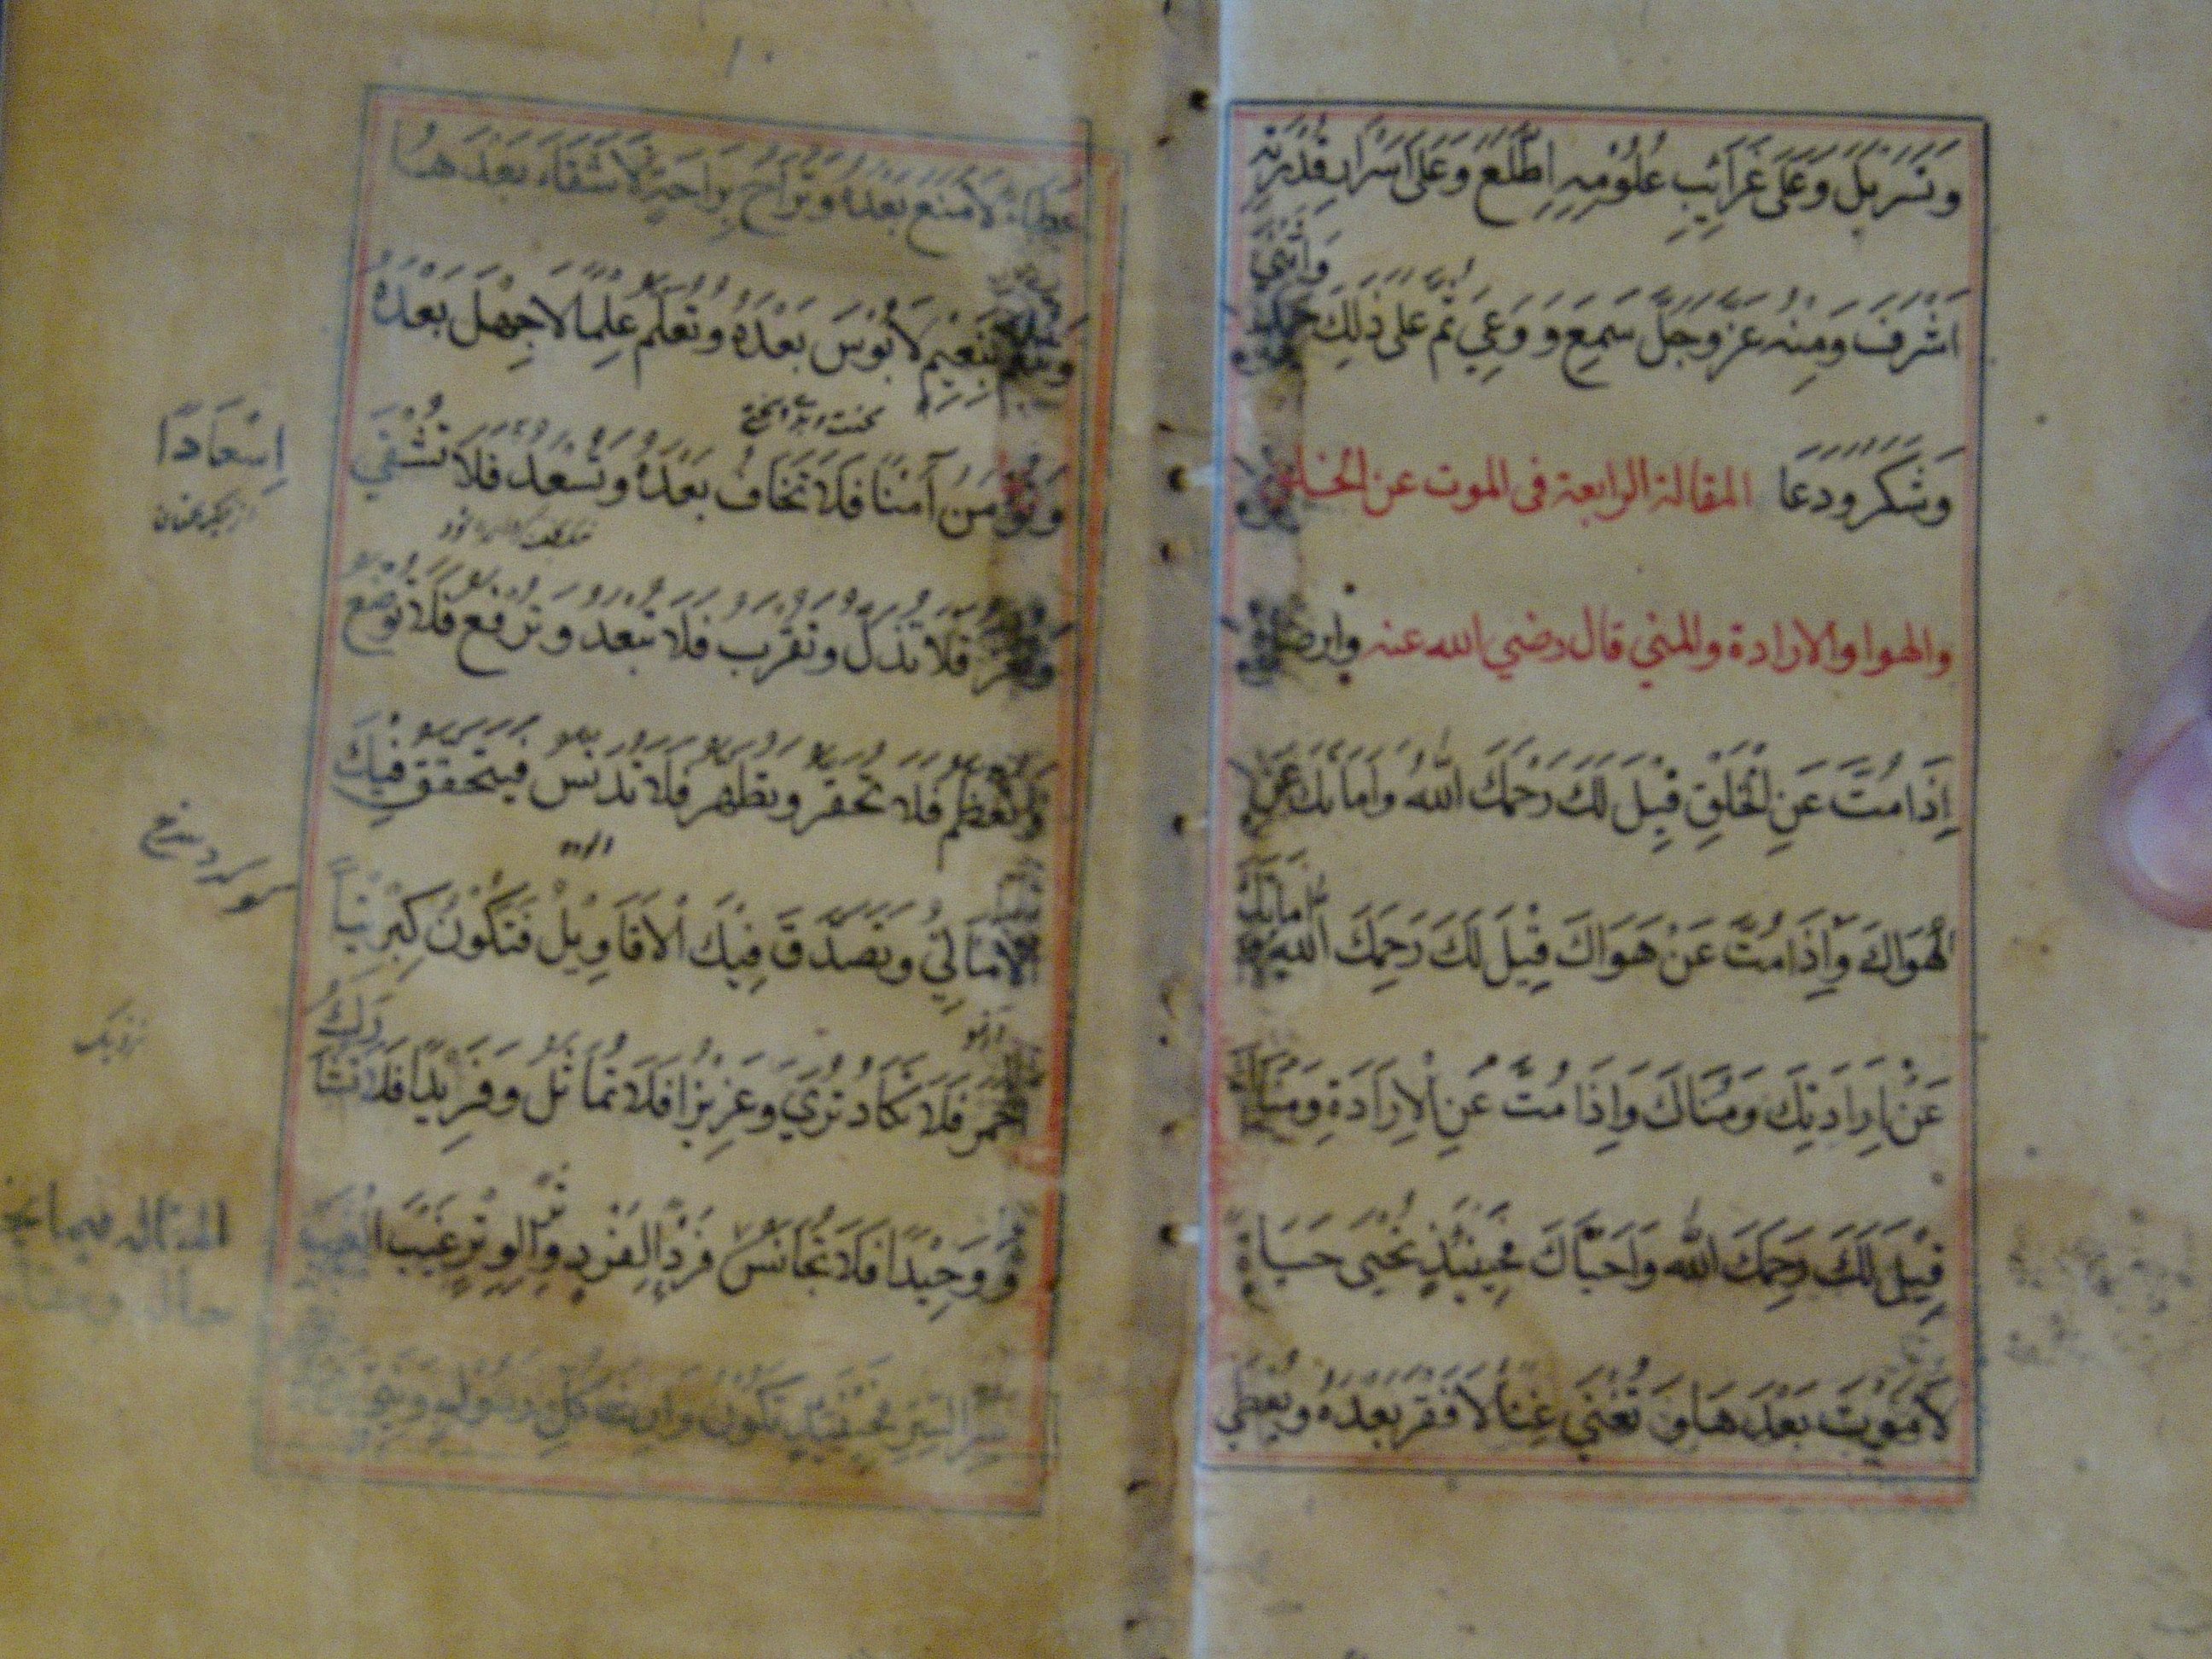 وتسربل وعلى غرائب علومه اطلع وعلى اسرار قدرته
اشرف ومنه عز وجل سمع و وعي ثم على ذلك حمد
واثنى
وشكر ودعا المقالة الرابعة فى الموت عن الخلق
والهوا والارادة والمني قال رضي الله عنه وارضاه
اِذَا مُتَّ عَنِ الْخَلْقِ قِيْلَ لَكَ رَحِمَكَ اللهُ وَاَمَاتَكَ عَنِ
الْهَوَاكَ وَاِذَا مُتَّ عَنْ هَوَاكَ قِيْلَ لَكَ رَحِمَكَ اللهُ
اماتك
عَنْ اِرَادَتِكَ وَمُنَاكَ وَاِذَا مُتَّ عَنِ الْاِرَادَةِ وَمُنَاكَ
قِيْلَ لَكَ رَحِمَكَ اللهُ وَاَحْيَاكَ فحِيْنَئِذٍ تُحْيٰى حَيَا
لَامَوْتَ بَعْدَهَا وَ تُغْنَي غِنَاءً لَا فَقْرَ بَعْدَهُ وَ تُعْطَي
عطاء لا منع بعده وتراح براحة لا شقاء بعدها
بنعيم لا بؤس بعده وتعلم علما لا جهل بعده
وتؤمن آمنًا فلا تخاف بعده وتسعد فلا تشقي
اِسْعَادًا
وتعز فلا تذل وتقرب فلا تبعد وترفع فلا توضع
وتعظم فلا تحقر وتطهر فلا تدنس فيتحقق فيك
الاماني وتصدق فيك الاقاويل فتكون كبريتا
كوكرد سرخ
احمر فلا تكاد ترى وعزيزا فلا تماثل وفريدا فلا تشا
رك
و وحيدا فلا تجانس فرد الفرد والوتر غيب الغيب
سر السر فحينئذ تكون وارث كل رسول ونبي